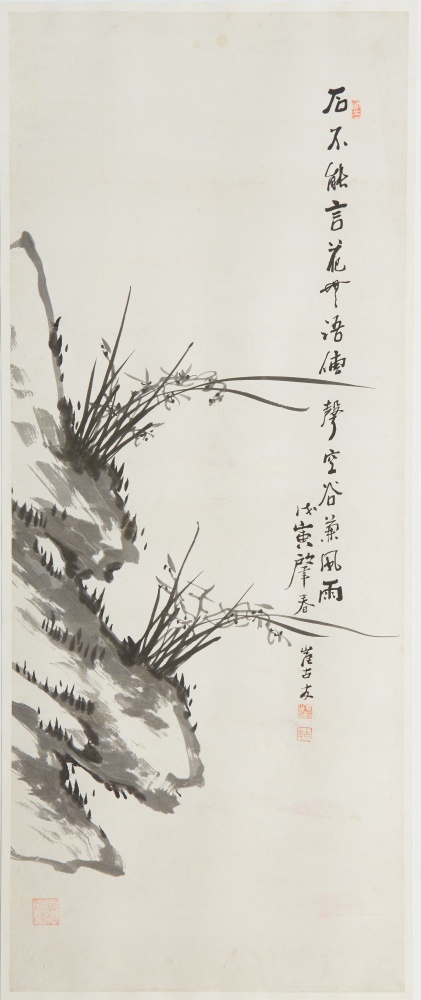 石不能言花無語傳聲空谷兼風雨
戊寅肇春
崔古友